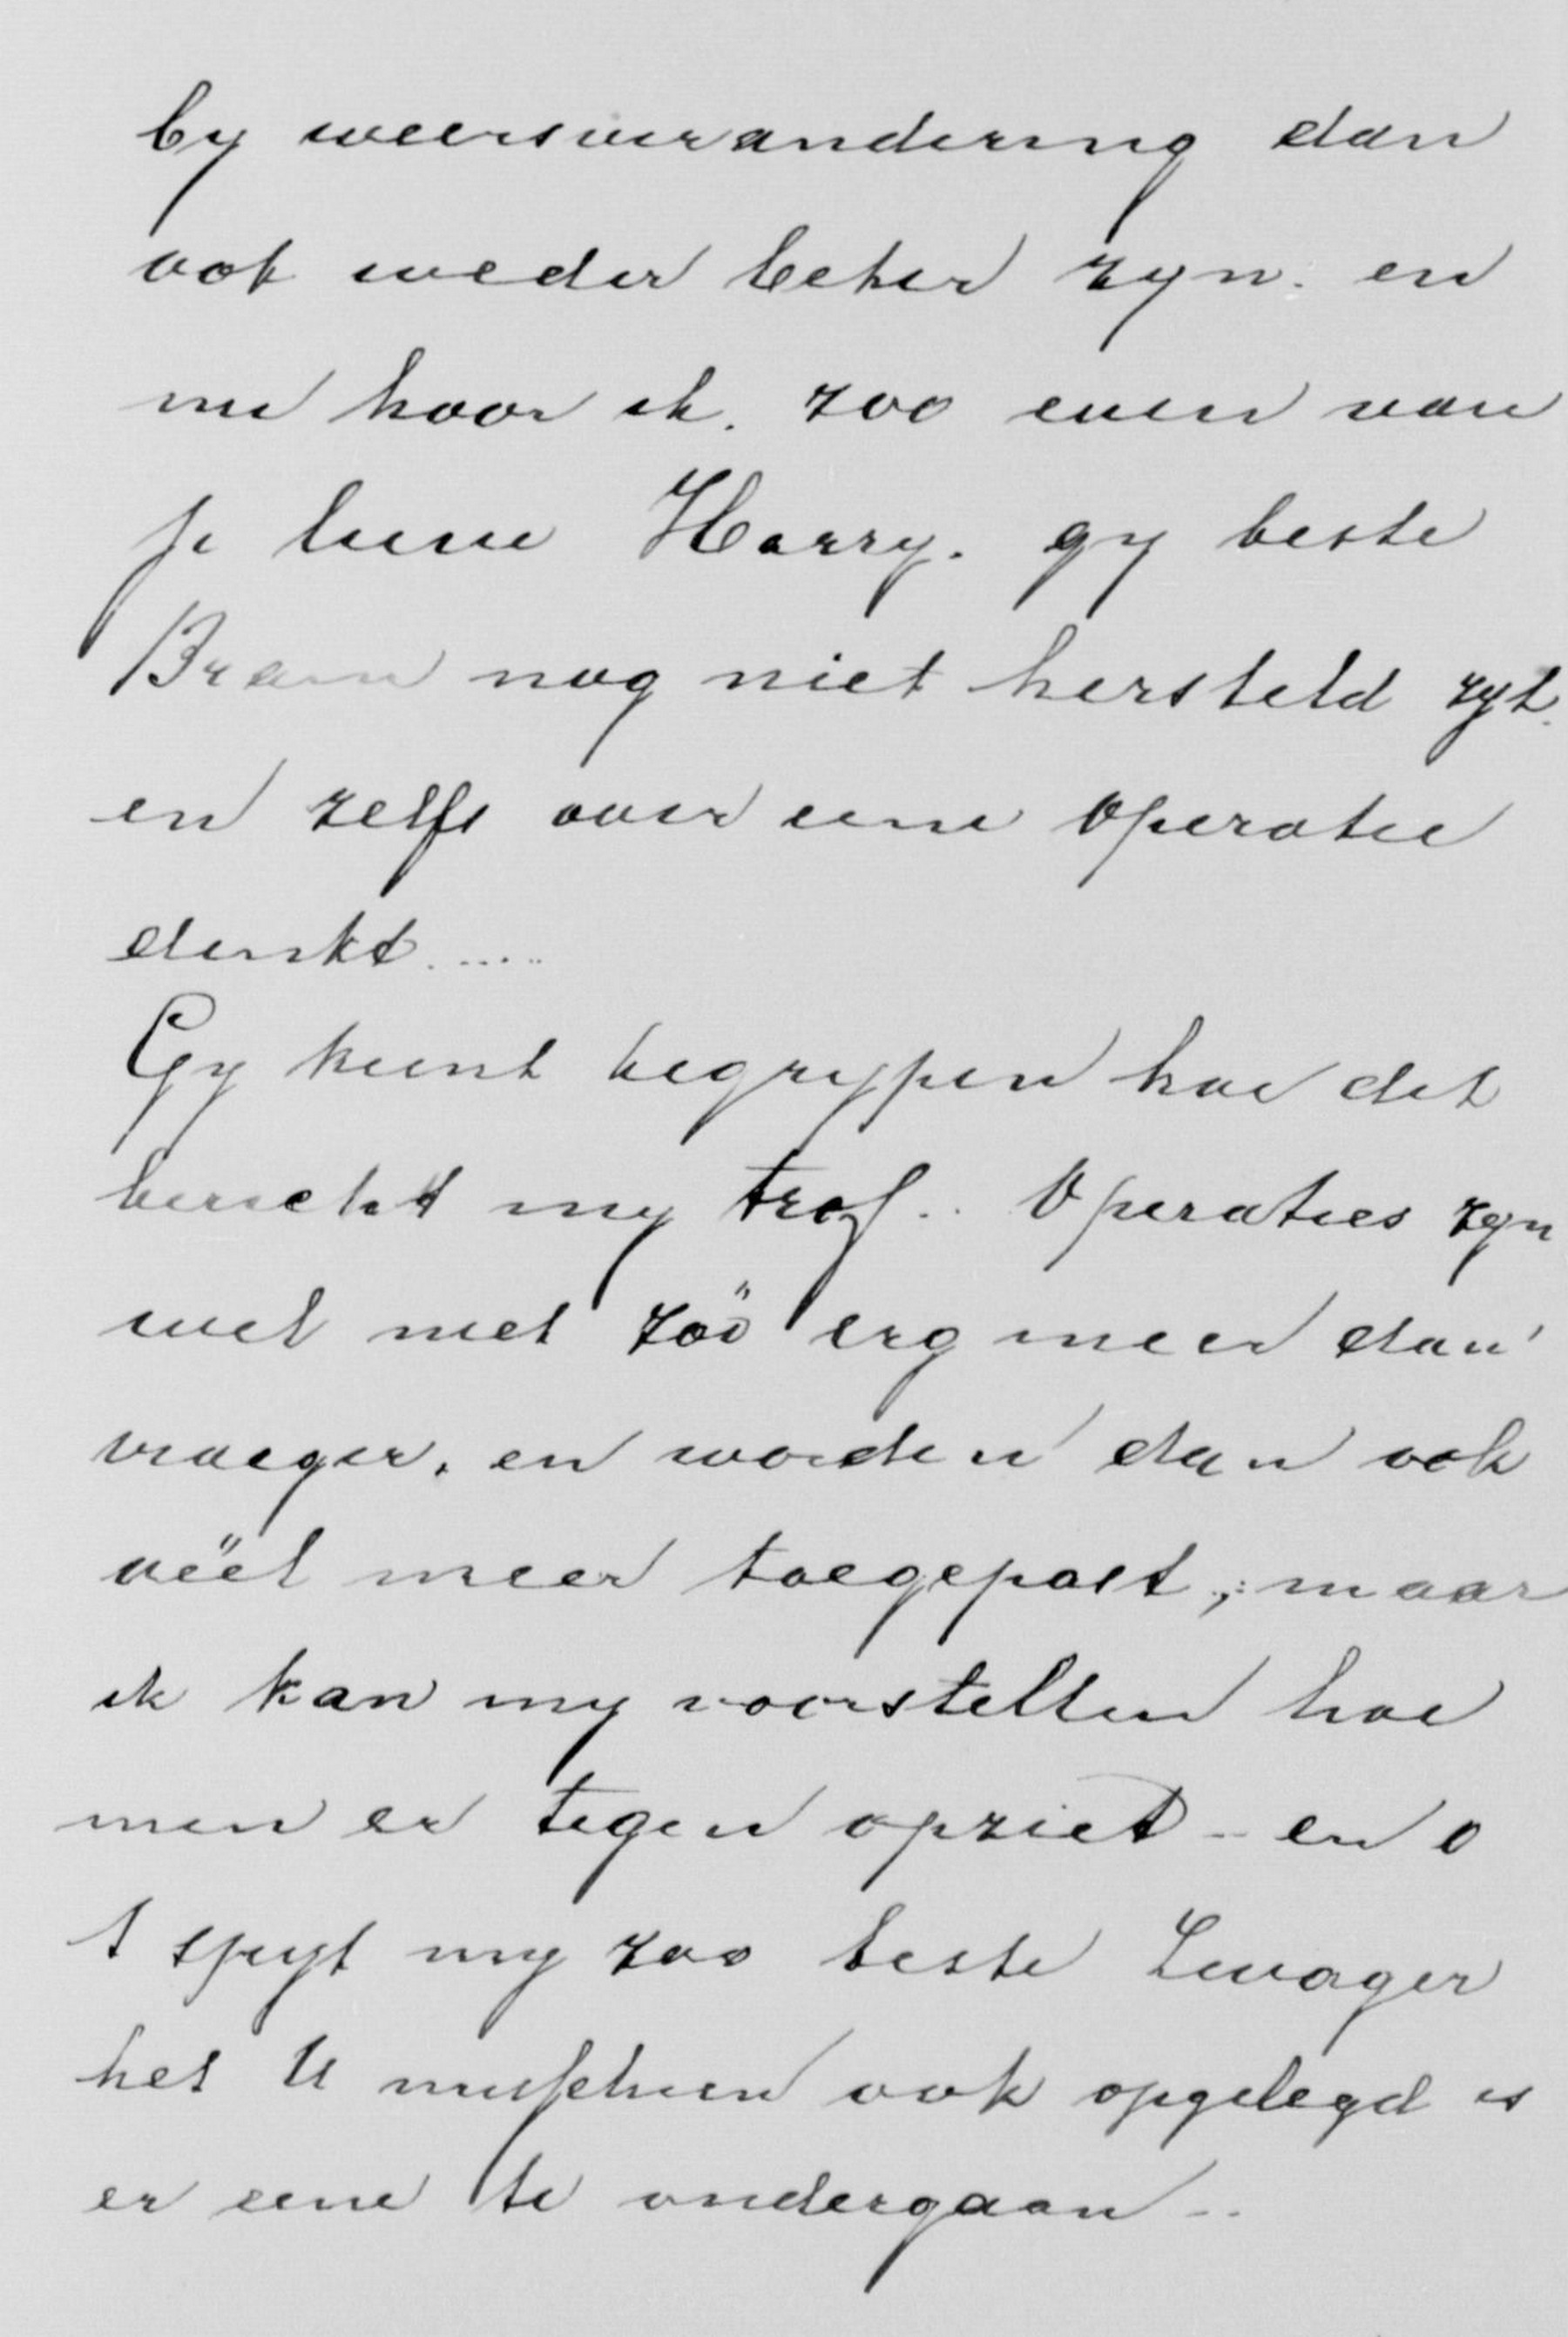 by weersverandering dan
ook weder beter zyn. en
nu hoor ik. zoo even van
je lieve Harry. gy beste
Bram nog niet hersteld zyt.
en zelfs over eene operatie
denkt.....
Gy kunt begrypen hoe dit
bericht my trof.. Operaties zyn
wel niet zöö erg meer dan
vroeger. en worden dan ook
vëël meer toegepast,; maar
ik kan my voorstellen hoe
men er tegen opziet - en o
t spyt my zoo beste Zwager
het U misschien ook opgelegd is
er eene te ondergaan..